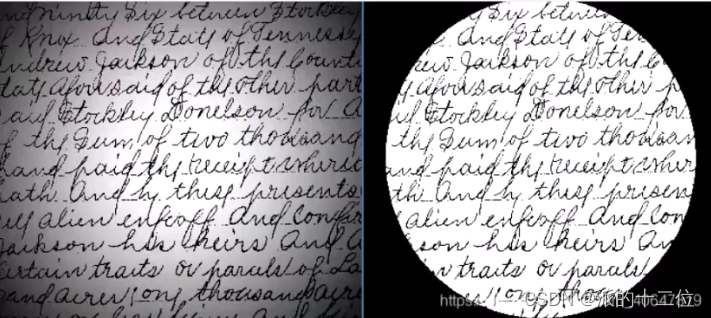 and ninety Six between Stockley
of Knox and State of Tennessee
Andrew Jackson of the County
State aforesaid of the other part
said Stockley Donelson for A
of the Sum of two thousand
hand paid the receipt where
hath and by these presents
alien enfeoff and Confir
Jackson his heirs and
certain traits or parcels of La
and acres one thousand acre
ninety Six between Sto
and State of Ten
Jackson of the
aforesaid of the other
Stockley Donelson for
the Sum of two thousan
and paid the receipt wher
th and by these presen
alien enfeoff and Con
son his heirs An
traits or parcels
one thou
https:
CSDN @派的十二位